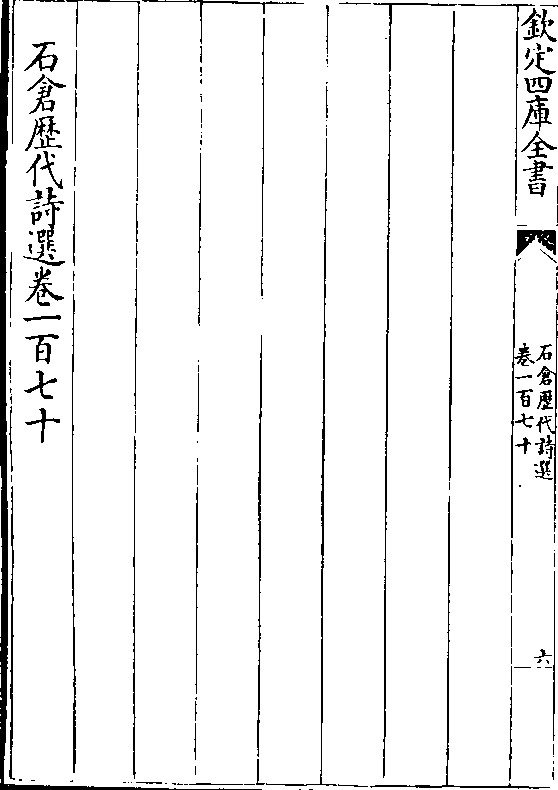 欽定四庫全書
石倉歷代詩選
卷一百七十
六
石倉歷代詩選卷一百七十